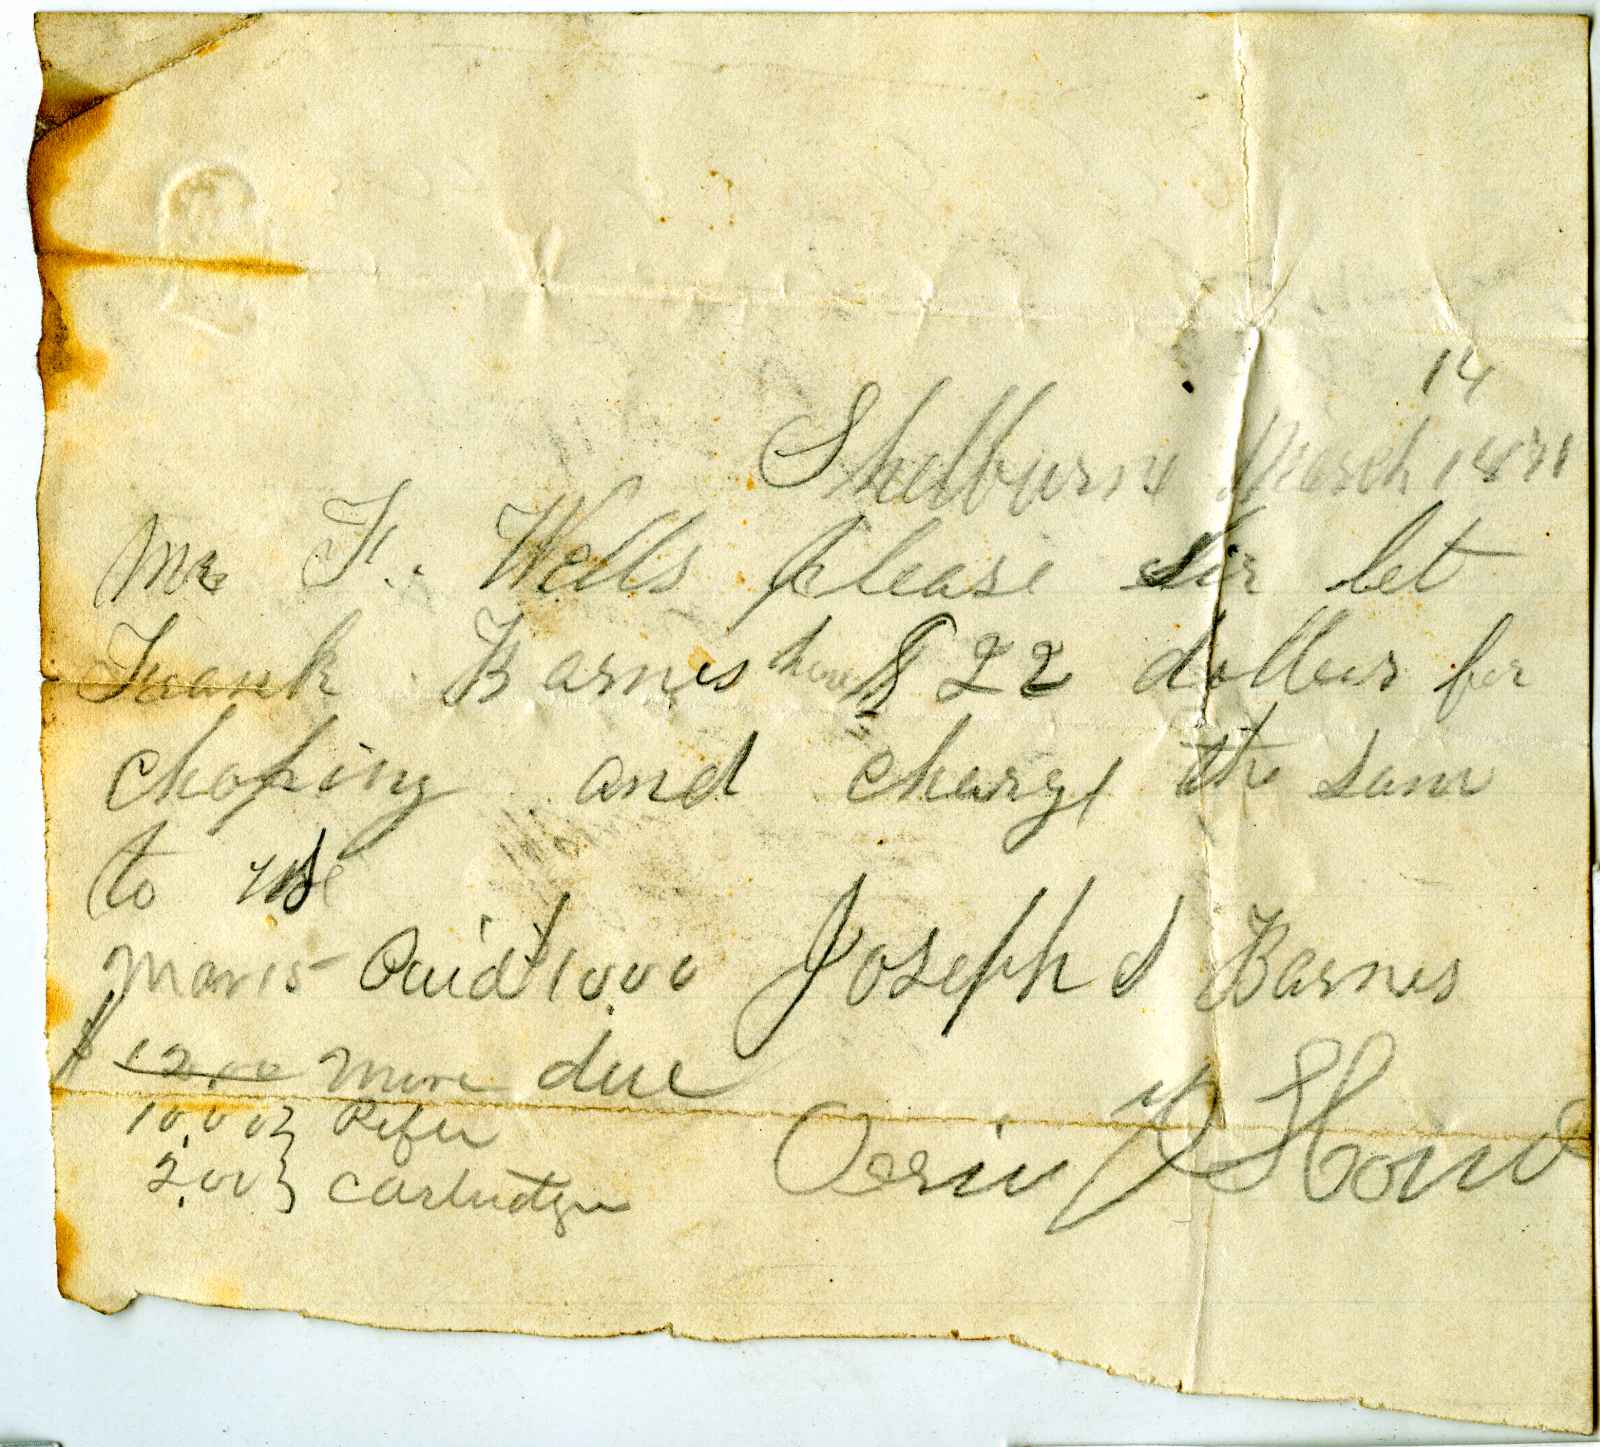 14
Shelburn March 1871
Mr F. Wells please sir let
Frank Barnes have $ 22 dollers for
choping and charge the same
to us
Mar 15 Paid $10.00 Joseph S Barnes
$ 12.00 more due
10.00 } Rifer
2.00 } Cartridges